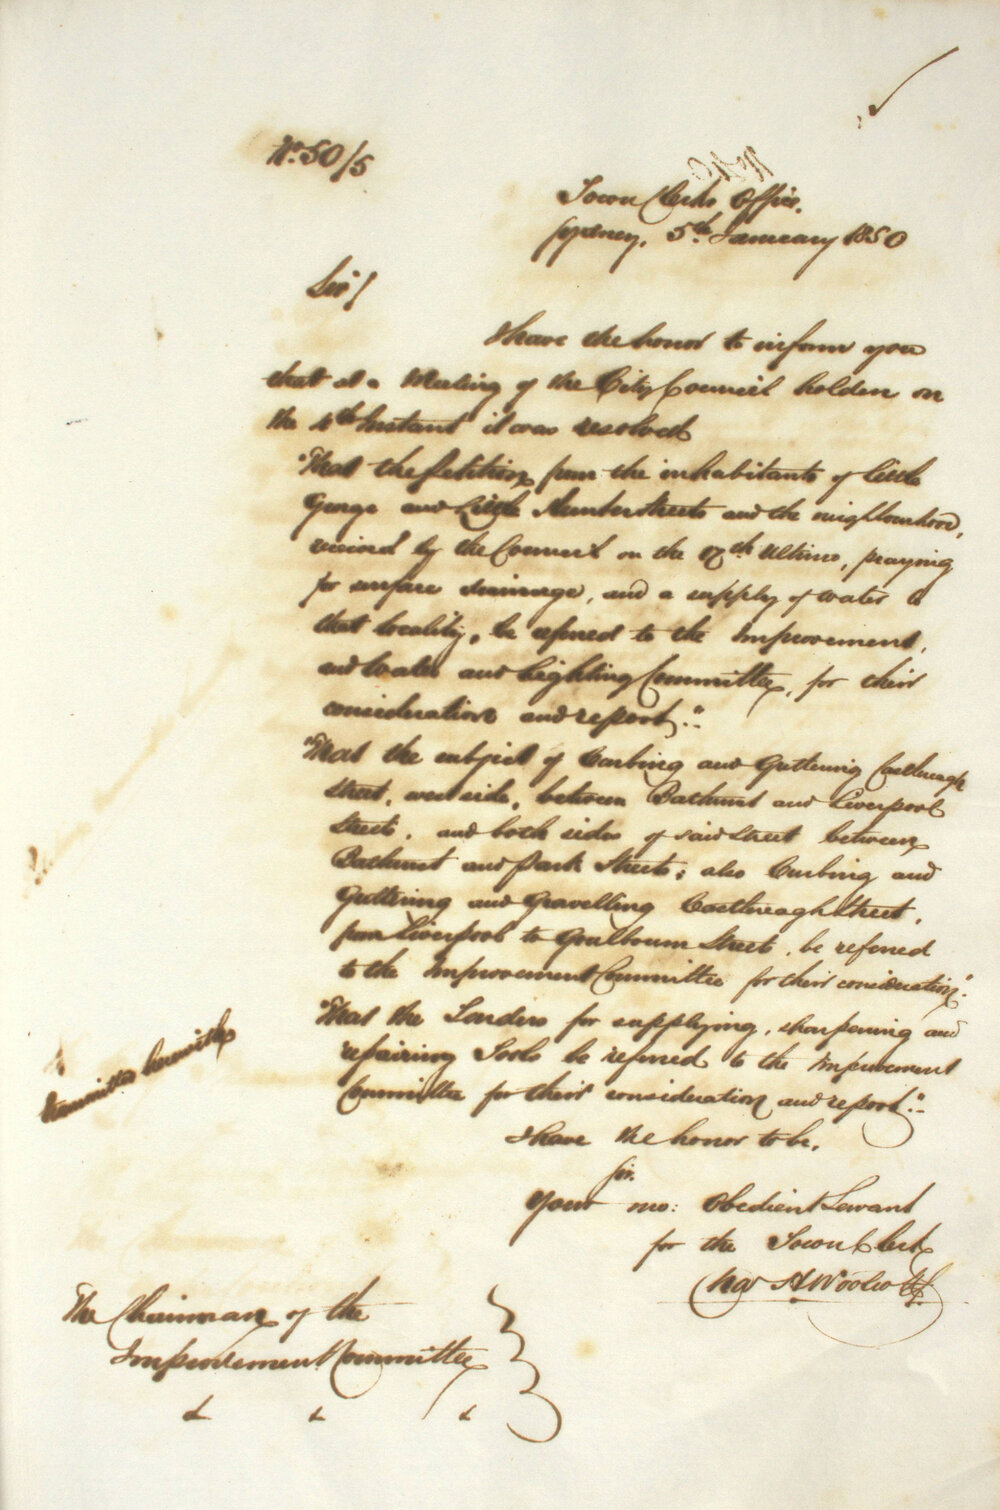 No. 50/5
Town Clerks Office,
Sydney, 5th January 1850
Sir!
I have the honor to inform you
that at a Meeting of the City Council holden on
the 4th Instant it was resolved
"That the Petition from the inhabitants of Little
George and Little Hunter Streets and the neighbourhood,
received by the Council on the 17th Ultimo, praying
for surface drainage, and a supply of water to
that locality, be referred to the Improvement,
and Water and Lighting Committee, for their
consideration and report."
"That the subject of Curbing and Guttering Castlereagh
Street, west side, between Bathurst and Liverpool
Streets, and both sides of said Street between
Bathurst and Park Streets; also Curbing and
Guttering and Gravelling Castlereagh Street,
from Liverpool to Goulbourn Street, be referred
to the Improvement Committee for their consideration."
"That the Tenders for supplying, sharpening and
repairing Tools be referred to the Improvement
Committee for their consideration and report."
transmitted herewith
I have the honor to be,
Sir,
Your mo: Obedient Servant
for the Town Clerk
Chas H Woolcott
The Chairman of the
Improvement Committee
& & &